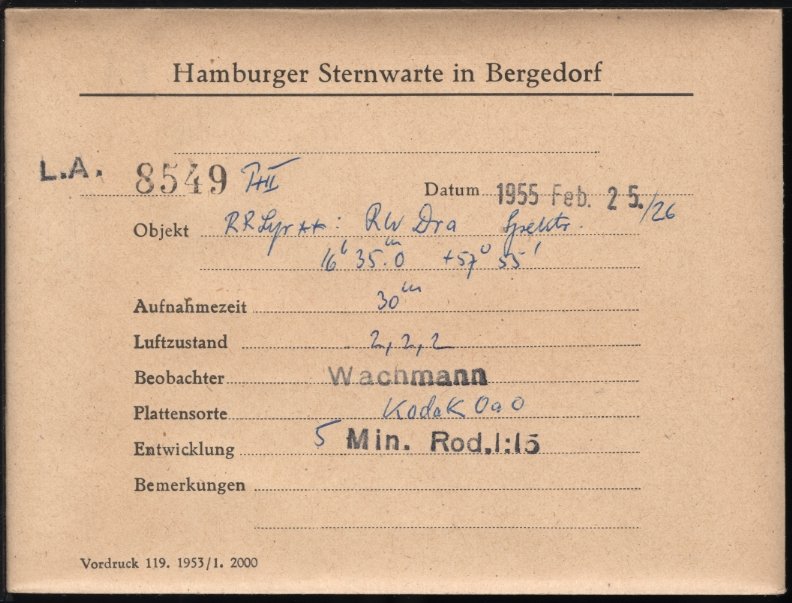 Hamburger Sternwarte in Bergedorf
L.A. 8549
Datum 1955 Feb. 25./26
Objekt RR Lyr **: RW Dra Spektr.
16h 35.m0 +57° 55'
Aufnahmezeit 30m
Luftzustand 2, 2, 2
Beobachter Wachmann
Plattensorte Kodak OaO
Entwicklung 5 Min. Rod.1:15
Bemerkungen
Vordruck 119. 1953/1. 2000